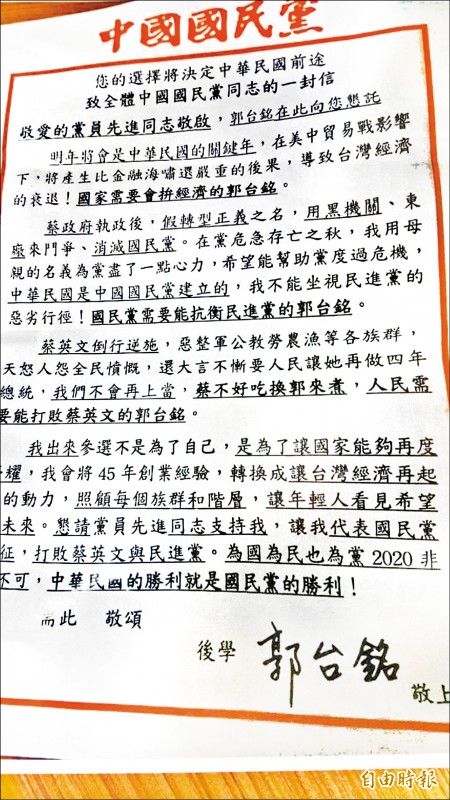 中國國民黨
您的選擇將決定中華民國前途
致全體中國國民黨同志的一封信
敬愛的黨員先進同志敬啟，郭台銘在此向您懇託
明年將會是中華民國的關鍵年，在美中貿易戰影響
下，將產生比金融海嘯還嚴重的後果，導致台灣經濟
的衰退！國家需要會拚經濟的郭台銘。
蔡政府執政後，假轉型正義之名，用黑機關、東
廠來鬥爭、消滅國民黨。在黨危急存亡之秋，我用母
親的名義為黨盡了一點心力，希望能幫助黨度過危機，
中華民國是中國國民黨建立的，我不能坐視民進黨的
惡劣行徑！國民黨需要能抗衡民進黨的郭台銘。
蔡英文倒行逆施，惡整軍公教勞農漁等各族群，
天怒人怨全民憤慨，還大言不慚要人民讓她再做四年
總統，我們不會再上當，蔡不好吃換郭來煮，人民需
要能打敗蔡英文的郭台銘。
我出來參選不是為了自己，是為了讓國家能夠再度
耀，我會將45年創業經驗，轉換成讓台灣經濟再起
的動力，照顧每個族群和階層，讓年輕人看見希望
未來。懇請黨員先進同志支持我，讓我代表國民黨
征，打敗蔡英文與民進黨。為國為民也為黨2020非
不可，中華民國的勝利就是國民黨的勝利！
此 敬頌
後學 郭台銘
敬上
自由時報